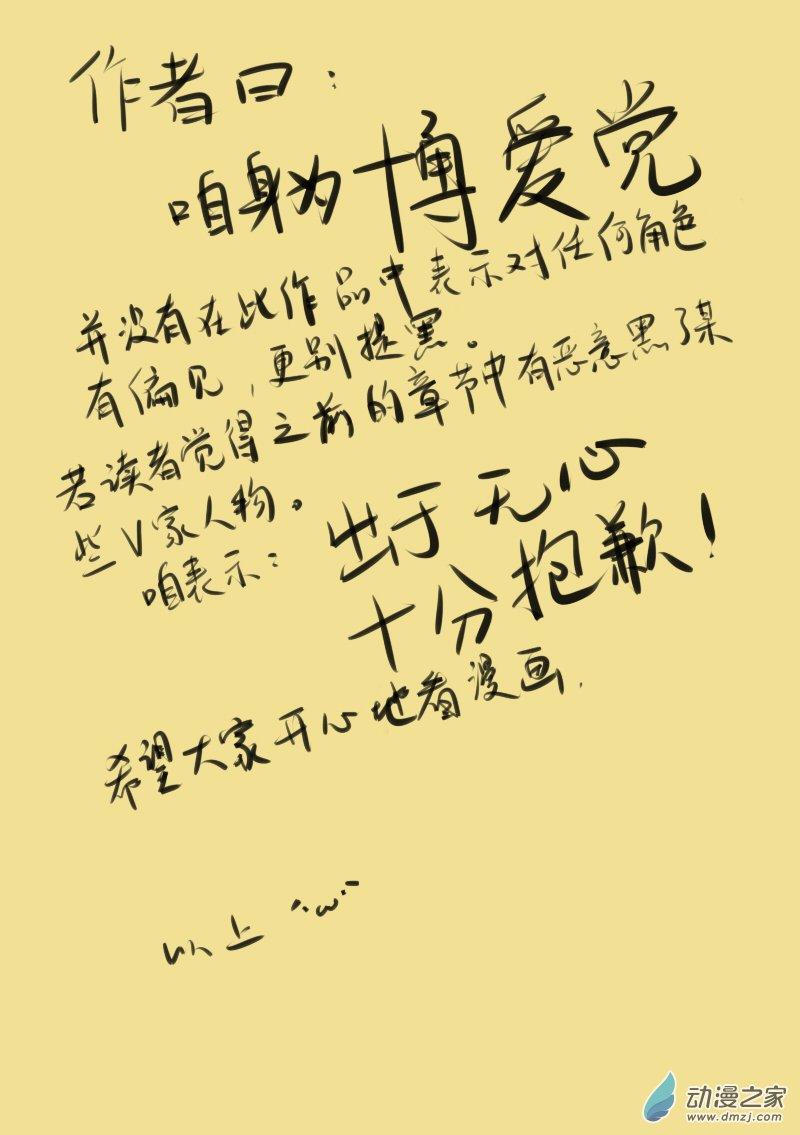 作者曰：
咱身为博爱党
并没有在此作品中表示对任何角色
有偏见，更别提黑。
若读者觉得之前的章节中有恶意黑了某
些V家人物。
咱表示：出于无心
十分抱歉！
希望大家开心地看漫画.
以上 ˙ω˙
动漫之家
www.dmzj.com